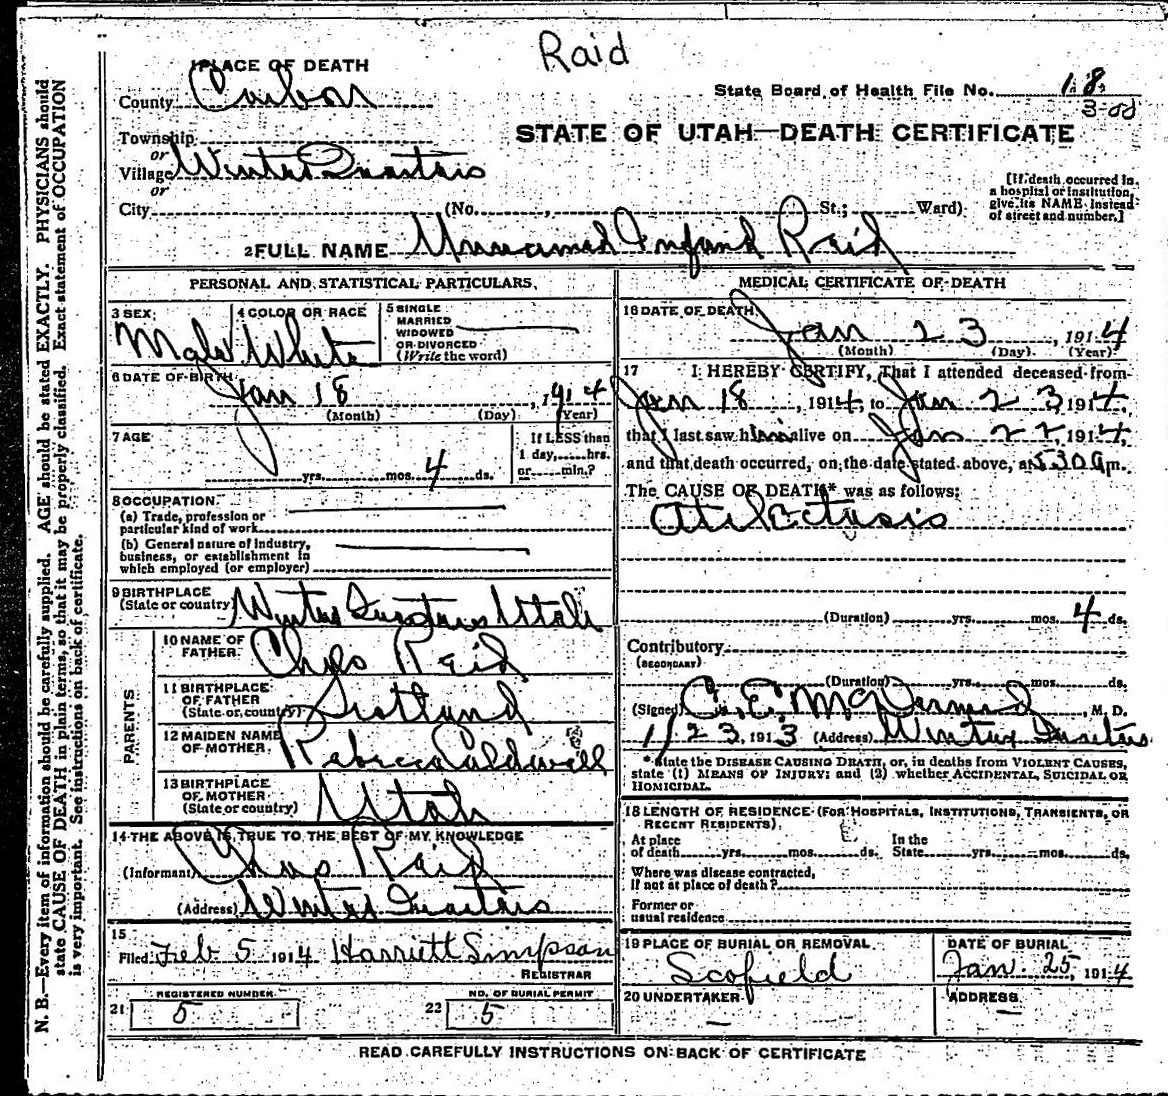 Raid
1 PLACE OF DEATH
County Carbon
State Board of Health File No. 18
3-00
STATE OF UTAH—DEATH CERTIFICATE
Township
or
Village Winter Quarters
or
City (No. , St.; Ward)
[If death occurred in a hospital or institution, give its NAME instead of street and number.]
2 FULL NAME Unnamed Infant Raid
PERSONAL AND STATISTICAL PARTICULARS
3 SEX Male
4 COLOR OR RACE White
5 SINGLE MARRIED WIDOWED OR DIVORCED (Write the word)
6 DATE OF BIRTH Jan 18, 1914
(Month) (Day) (Year)
7 AGE yrs. mos. 4 ds.
If LESS than 1 day, hrs. or min.?
8 OCCUPATION
(a) Trade, profession or particular kind of work
(b) General nature of industry, business, or establishment in which employed (or employer)
9 BIRTHPLACE (State or country) Winter Quarters Utah
PARENTS
10 NAME OF FATHER Chas Raid
11 BIRTHPLACE OF FATHER (State or country) Scotland
12 MAIDEN NAME OF MOTHER Rebecca Caldwell
13 BIRTHPLACE OF MOTHER (State or country) Utah
14 THE ABOVE IS TRUE TO THE BEST OF MY KNOWLEDGE
(Informant) Chas Raid
(Address) Winter Quarters
15
Filed Feb 5 1914 Harriett Simpson
REGISTRAR
21 REGISTERED NUMBER 5
22 NO. OF BURIAL PERMIT 5
MEDICAL CERTIFICATE OF DEATH
16 DATE OF DEATH
Jan 23, 1914
(Month) (Day) (Year)
17 I HEREBY CERTIFY, That I attended deceased from
Jan 18, 1914, to Jan 23 1914,
that I last saw him alive on Jan 22, 1914,
and that death occurred, on the date stated above, at 530 a m.
The CAUSE OF DEATH* was as follows:
Atilectasis
(Duration) yrs. mos. 4 ds.
Contributory
(SECONDARY)
(Duration) yrs. mos. ds.
(Signed) C. E. McDermid, M. D.
1/23, 1913 (Address) Winter Quarters
* State the DISEASE CAUSING DEATH, or, in deaths from VIOLENT CAUSES, state (1) MEANS OF INJURY; and (2) whether ACCIDENTAL, SUICIDAL OR HOMICIDAL.
18 LENGTH OF RESIDENCE (FOR HOSPITALS, INSTITUTIONS, TRANSIENTS, OR RECENT RESIDENTS)
At place of death yrs. mos. ds. In the State yrs. mos. ds.
Where was disease contracted, if not at place of death?
Former or usual residence
19 PLACE OF BURIAL OR REMOVAL Scofield
DATE OF BURIAL Jan. 25, 1914
20 UNDERTAKER —
ADDRESS —
READ CAREFULLY INSTRUCTIONS ON BACK OF CERTIFICATE
N. B.—Every item of information should be carefully supplied. AGE should be stated EXACTLY. PHYSICIANS should
state CAUSE OF DEATH in plain terms, so that it may be properly classified. Exact statement of OCCUPATION
is very important. See instructions on back of certificate.